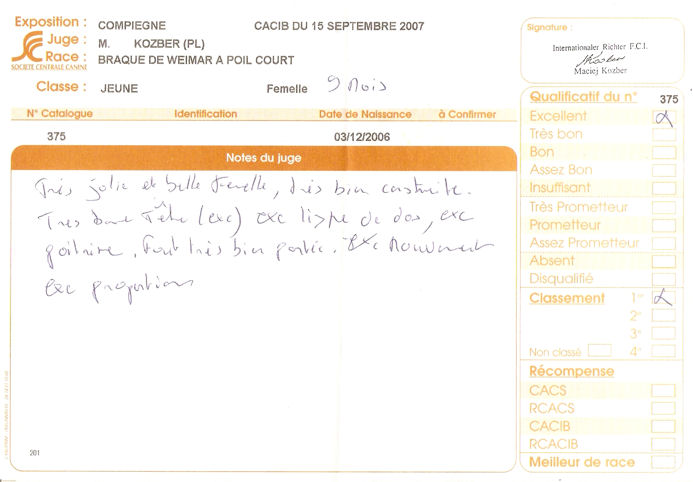 Exposition : COMPIEGNE CACIB DU 15 SEPTEMBRE 2007
Juge : M. KOZBER (PL)
Race : BRAQUE DE WEIMAR A POIL COURT
SOCIÉTÉ CENTRALE CANINE
Classe : JEUNE Femelle 9 Mois
N° Catalogue Identification Date de Naissance à Confirmer
375 03/12/2006
Notes du juge
Très jolie et belle Femelle, très bien construite.
Tres bonne Tête (exc) exc ligne de dos, exc
poitrine. Fouet très bien portée. exc Mouvement
exc proportions
201
Signature :
Internationaler Richter F.C.I.
Kozber
Maciej Kozber
Qualificatif du n° 375
Excellent X
Très bon
Bon
Assez Bon
Insuffisant
Très Prometteur
Prometteur
Assez Prometteur
Absent
Disqualifié
Classement 1er X
2e
3e
Non classé 4e
Récompense
CACS
RCACS
CACIB
RCACIB
Meilleur de race